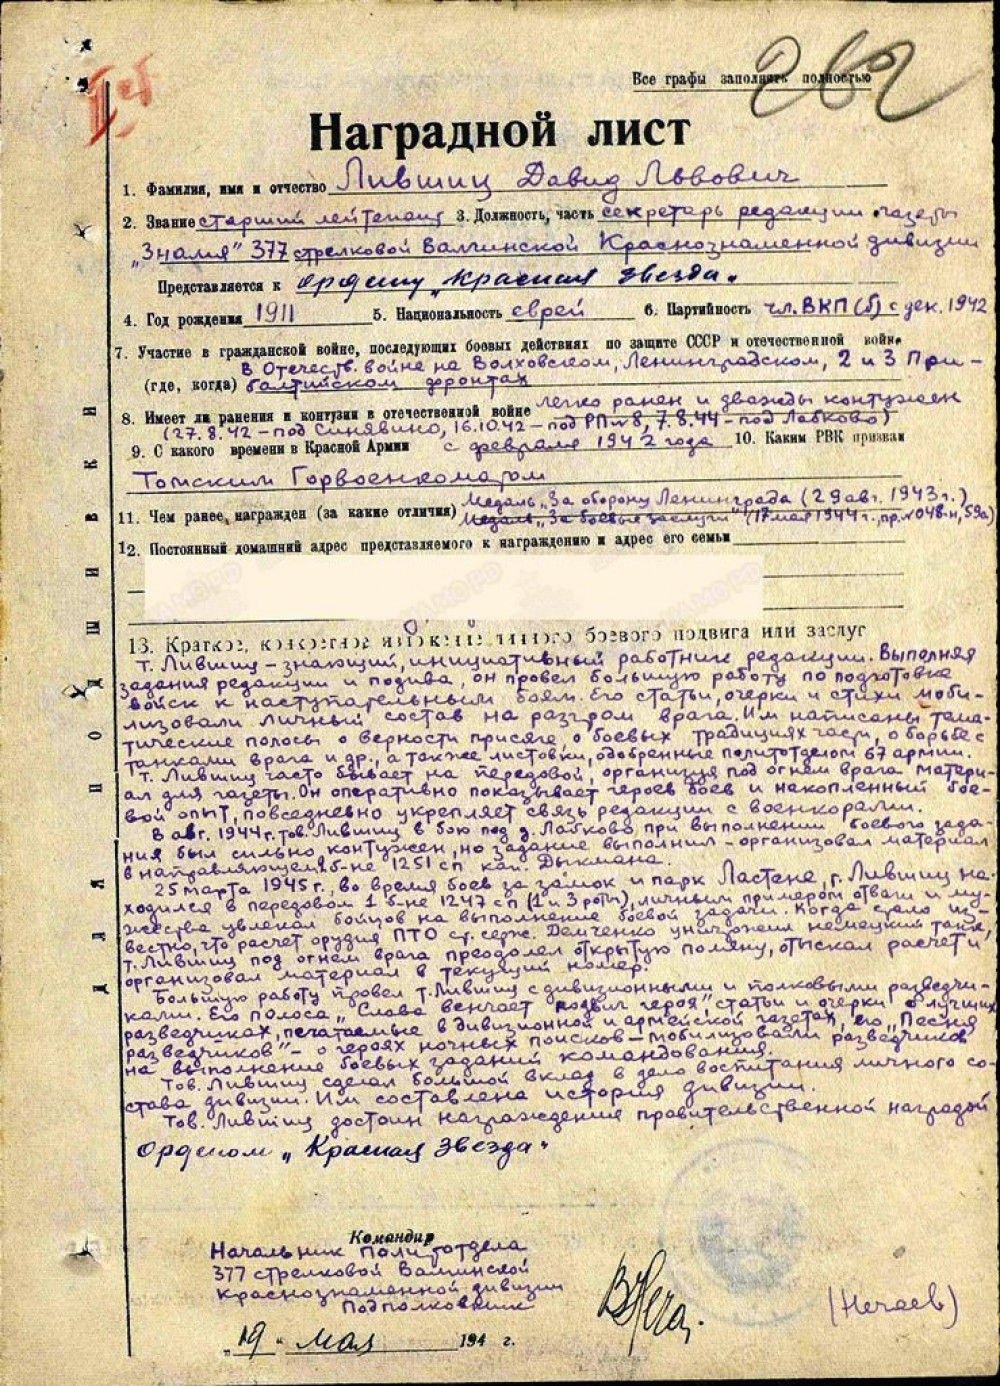 262
Все графы заполнять полностью
Наградной лист
1. Фамилия, имя и отчество Лившиц Давид Львович
2. Звание старший лейтенант 3. Должность, часть секретарь редакции газеты
"Знамя" 377 стрелковой Валгинской Краснознаменной дивизии
Представляется к ордену "Красная звезда"
4. Год рождения 1911 5. Национальность еврей 6. Партийность чл. ВКП(б) с дек. 1942
7. Участие в гражданской войне, последующих боевых действиях по защите СССР и отечественной войне
В Отечеств. войне на Волховском, Ленинградском, 2 и 3 При-
(где, когда) балтийском фронтах
8. Имеет ли ранения и контузии в отечественной войне легко ранен и дважды контужен
(27.8.42 – под Синявино, 16.10.42 – под РП №8, 7.8.44 – под Лабково)
9. С какого времени в Красной Армии с февраля 1942 года 10. Каким РВК призван
Томским Горвоенкоматом
Медаль "За оборону Ленинграда" (29 авг. 1943 г.)
11. Чем ранее награжден (за какие отличия) Медаль "За боевые заслуги" (17 мая 1944 г., пр. №048-н, 59а)
12. Постоянный домашний адрес представляемого к награждению и адрес его семьи
13. Краткое, конкретное изложение личного боевого подвига или заслуг
т. Лившиц – знающий, инициативный работник редакции. Выполняя
задания редакции и подива, он провел большую работу по подготовке
войск к наступательным боям. Его статьи, очерки и стихи моби-
лизовали личный состав на разгром врага. Им написаны тема-
тические полосы о верности присяге, о боевых традициях части, о борьбе с
танками врага и др., а также листовки, одобренные политотделом 67 армии.
т. Лившиц часто бывает на передовой, организуя под огнем врага матери-
ал для газеты. Он оперативно показывает героев боев и накопленный бое-
вой опыт, повседневно укрепляет связь редакции с военкорами.
В авг. 1944 г. тов. Лившиц в бою под д. Лабково при выполнении боевого зада-
ния был сильно контужен, но задание выполнил – организовал материал
в направляющем б-не 1251 сп кап. Дыкмана.
25 марта 1945 г., во время боев за замок и парк Ластене, т. Лившиц на-
ходился в передовом 1 б-не 1247 сп (1 и 3 роты), личным примером отваги и му-
жества увлекал бойцов на выполнение боевой задачи. Когда стало из-
вестно, что расчет орудия ПТО ст. серж. Демченко уничтожил немецкий танк,
т. Лившиц под огнем врага преодолел открытую поляну, отыскал расчет и
организовал материал в текущий номер.
Большую работу провел т. Лившиц с дивизионными и полковыми разведчи-
ками. Его полоса "Слава венчает подвиг героя", статьи и очерки о лучших
разведчиках, печатаемые в дивизионной и армейской газетах, его "Песня
разведчиков" – о героях ночных поисков – мобилизовали разведчиков
на выполнение боевых заданий командования.
Тов. Лившиц сделал большой вклад в дело воспитания личного со-
става дивизии. Им составлена история дивизии.
Тов. Лившиц достоин награждения правительственной наградой
Орденом "Красная Звезда"
Командир
Начальник Политотдела
377 стрелковой Валгинской
Краснознаменной дивизии
Подполковник
(Нечаев)
"19" мая 194 г.
ДЛЯ ПОДШИВКИ